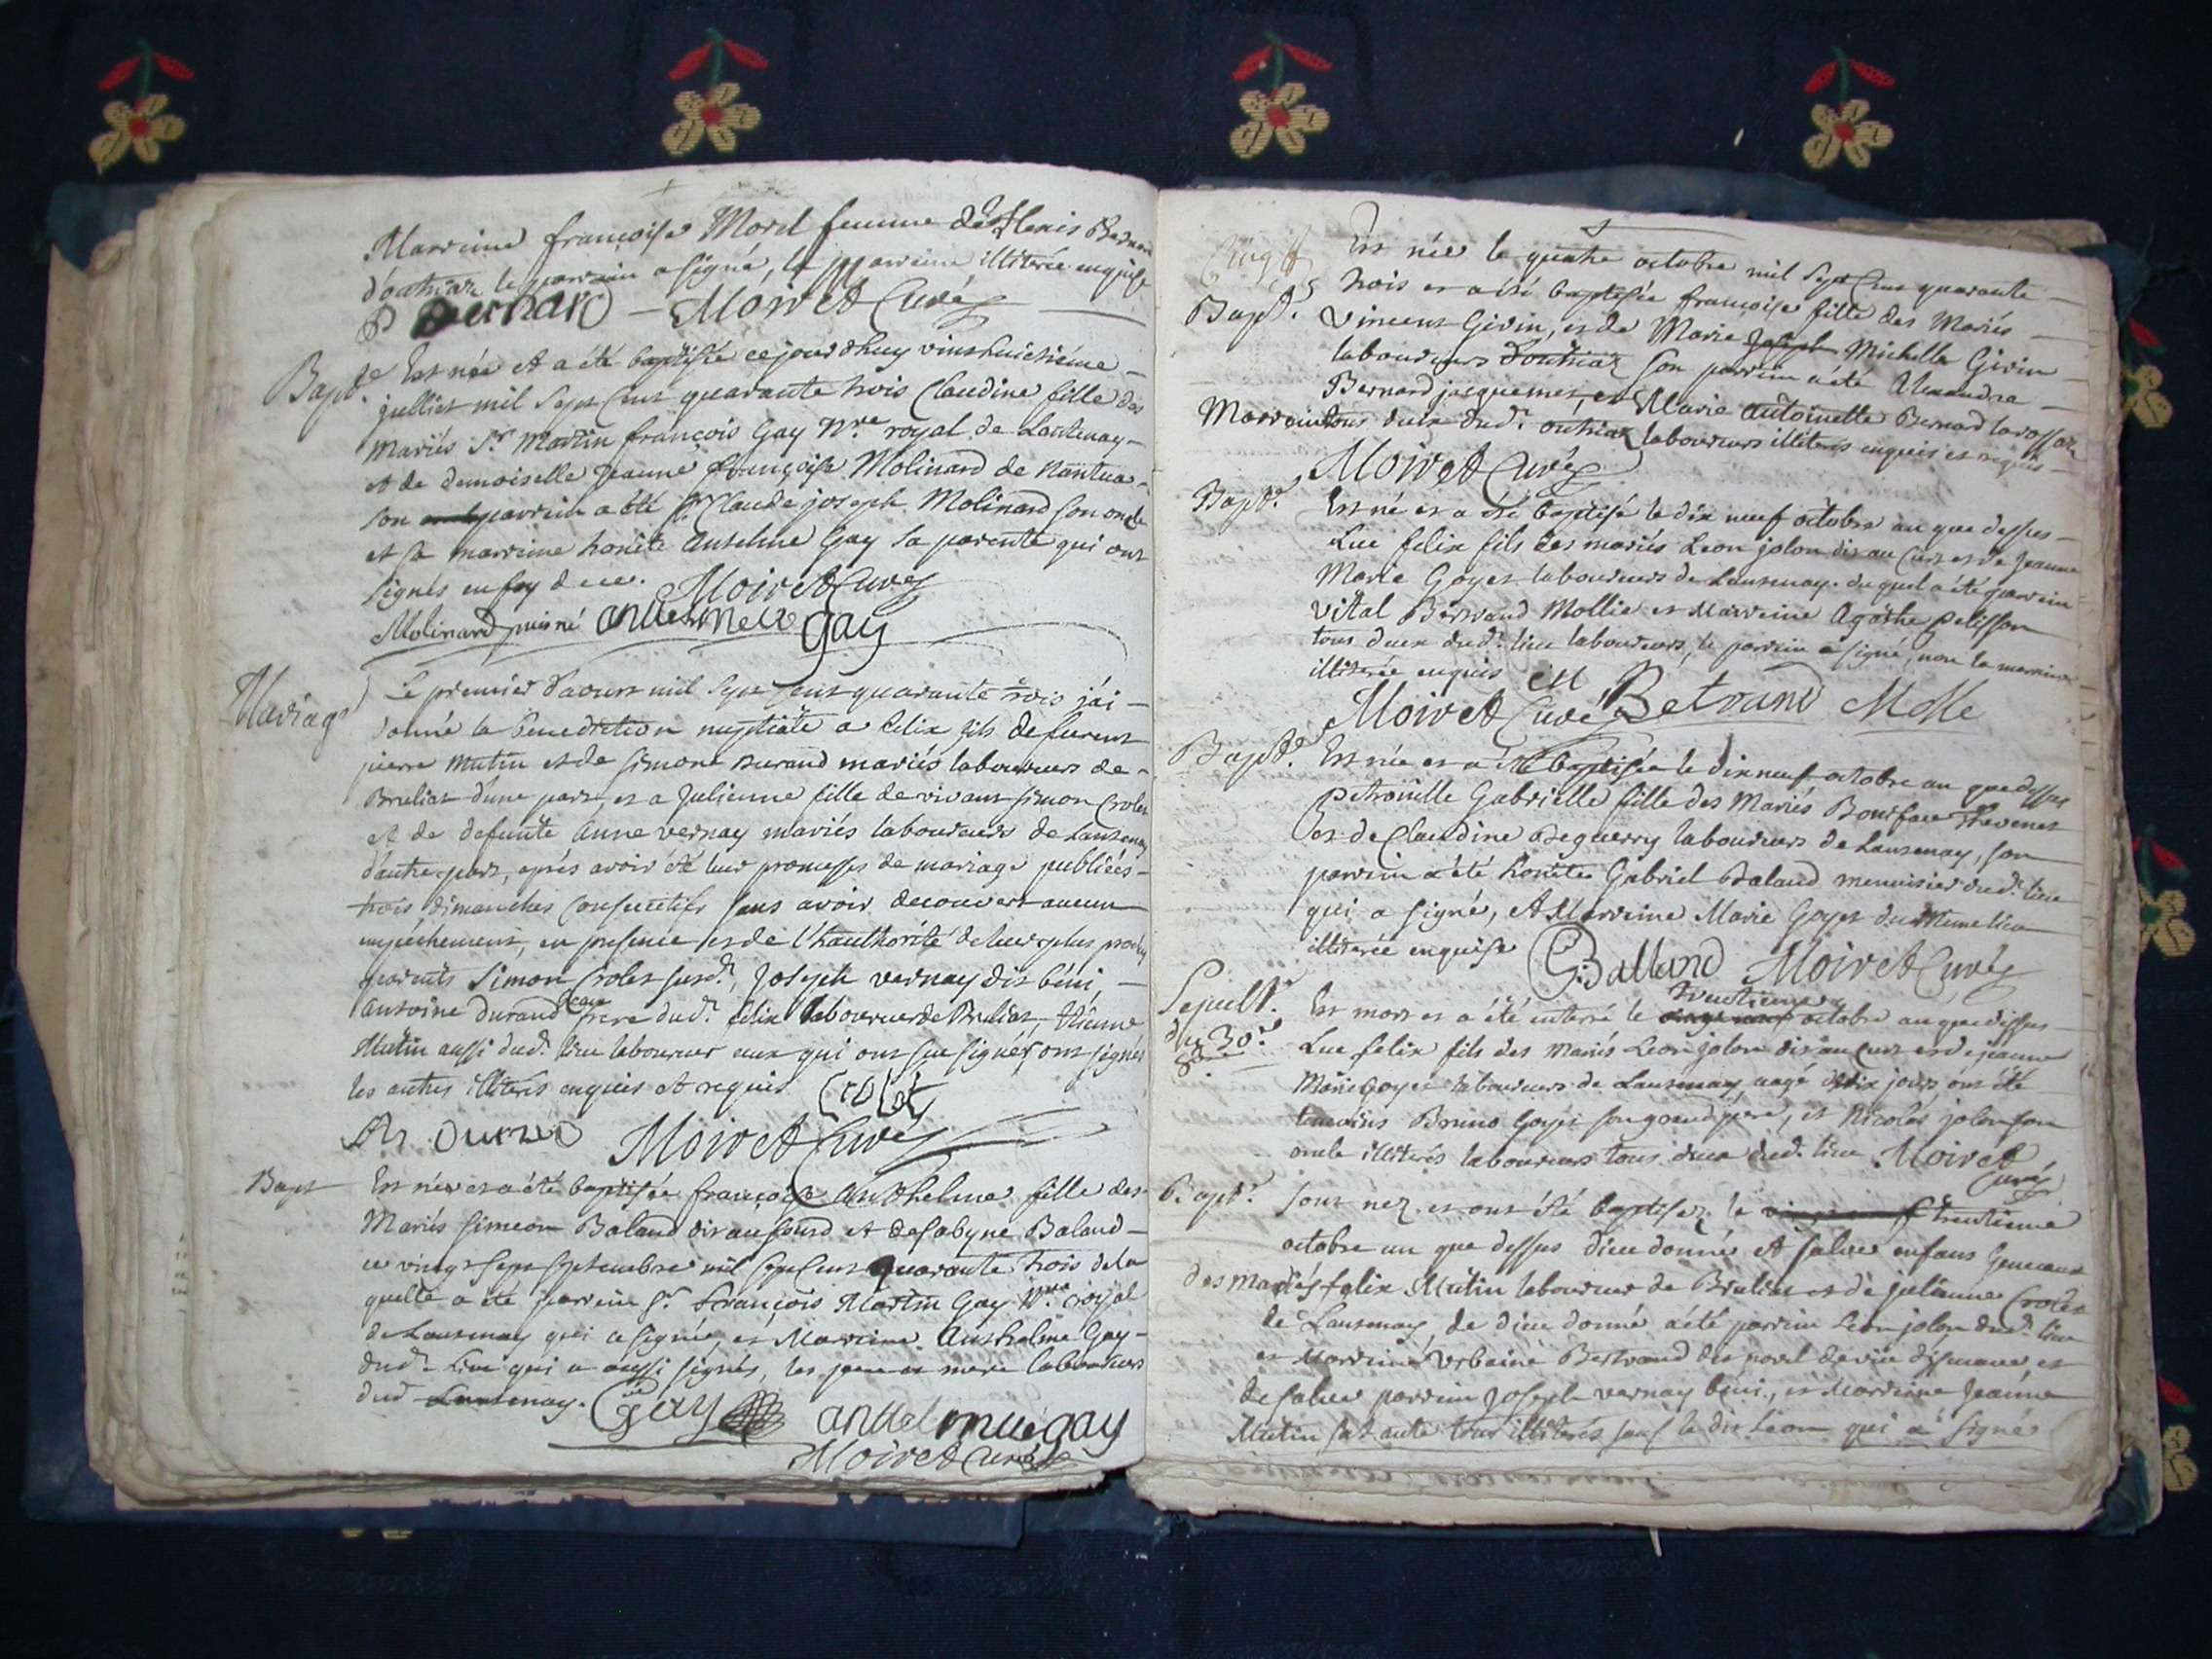 Marreine françoise Morel femme de Alexis Bernard
d'outriaz le parrein a signé, la marreine illiterée enquise
Bernard – Moiret Curé
Bapt.e Est née et a été baptisée cejourdhuy vinthuictiéme
julliet mil sept cent quarante trois Claudine fille des
Mariés S.r Martin françois Gay N.re royal de Lantenay
et de demoiselle Jeanne françoise Molinard de Nantua
son parrein a été S.r Claude joseph Molinard son oncle
et sa marreine honête Antelme Gay sa parente qui ont
signés en foy de ce. Moiret Curé
Molinard puisné antesmele gay
Mariage Le premier d'aoust mil sept cent quarante trois j'ai
donné la benediction nuptiale a felix fils de furent
pierre Mutin et de simone Durand mariés laboureurs de
Brulias d'une part, et a Julienne fille de vivant simon Crolet
et de defunte anne vernay mariés laboureurs de Lantenay
d'autre part, aprés avoir été leur promesses de mariage publiées
trois dimanches consecutifs sans avoir decouvert aucun
empéchement, en presence et de l'hauthorité de leur plus proches
parents Simon Crolet susd.t, Joseph vernay dit béni,
Antoine durand frere dud.t felix laboureur de Brulias, Etienne
Mutin aussi dud.t lieu laboureur eux qui ont sçu signer, ont signés
les autres illiterés enquis et requis Crolet
An Durand Moiret Curé
Bapt Est née et a été baptisée françoise Anthelme fille des
Mariés simeon Baland dit au sourd et de sabyne Baland
ce vingt sept septembre mil sept cent quarante trois de la
quelle a été parrein S.r François Martin Gay N.re royal
de Lantenay qui a signé, et Marreine Anthelme Gay
dud.t lieu qui a aussi signés, les pere et mere laboureurs
dud Lantenay. Gay antelme gay
Moiret Curé
Est née le quatre octobre mil sept cent quarante
trois et a été baptisée françoise fille des Mariés
Bapt.e vincent Givin, et de Marie Joseph Michelle Givin
laboureurs d'outriaz son parrein a été Alexandre
Bernard jacquemet, et Marie antoinette Bernard
Marreine tous deux dud.t outriaz laboureurs illiterés enquis et requis
Moiret Curé
Bapt.e Est né et a été baptisé le dix neuf octobre an que dessus
Luc felix fils des mariés Leon jolon dit au Curt et de Jeanne
Marie Goyet laboureurs de Lantenay. duquel a été parrein
vital Bertrand Mollie et Marreine Agathe pelisson
tous deux dud.t lieu laboureurs, le parrein a signé, non la marreine
illiterée enquise
Moiret Curé Betrand Molle
Bapt.e Est née et a été baptisée le dix neuf octobre an que dessus
Petronille Gabrielle fille des Mariés Boniface Thevenet
et de Claudine Deguerry laboureurs de Lantenay, son
parrein a été honête Gabriel Baland menuisier dud.t lieu
qui a signé, et Marreine Marie Goyet du même lieu
illiterée enquise G Balland Moiret Curé
Sepult.e trentieme
Est mort et a été enterré le octobre an que dessus
du 30.e Luc felix fils des mariés Leon jolon dit au Curt et de jeanne
8bre Marie Goyet laboureurs de Lantenay, aagé dix jours, ont été
temoins Bruno Goyet son grand pere, et Nicolas jolon son
oncle illiterés laboureurs tous deux dud.t lieu Moiret
Curé
Bapt.e Sont nez et ont été baptisez le trentieme
octobre an que dessus dieu donné et salve enfans Gemeaux
des mariés felix Mutin laboureur de Brulias et de julienne Crolet
de Lantenay, de dieu donné a été parrein Leon jolon dud.t lieu
et Marreine Urbaine Bertrand
de salve parrein Joseph vernay béni, et Marreine Jeanne
Mutin sa tante tous illiterés sauf le dit Leon qui a signés